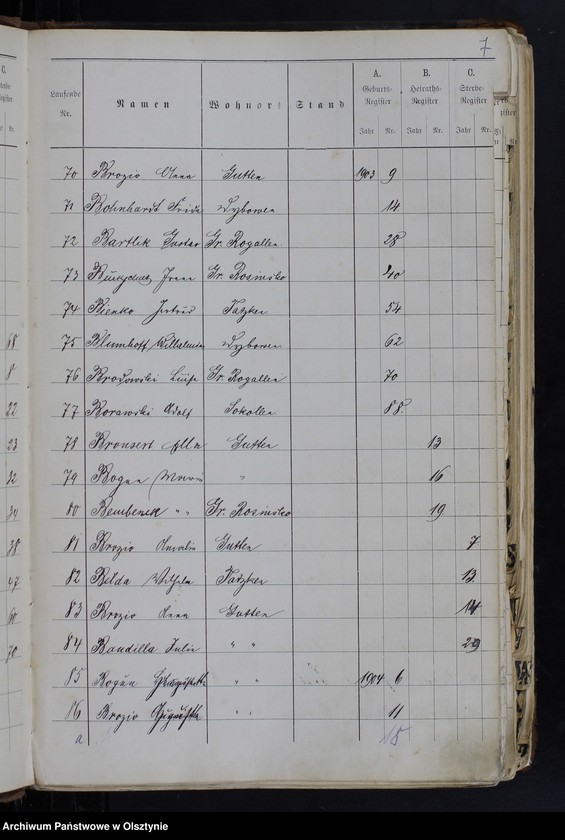 7
Laufende Nr. Namen Wohnort Stand A. Geburts-Register Jahr Nr. B. Heiraths-Register Jahr Nr. C. Sterbe-Register Jahr Nr.
70 Brozio Anna Gutten 1903 9
71 Bohnhardt Frida Dybowen 14
72 Bartlik Gustav Gr. Rogallen 28
73 Gr. Rosinsko 40
74 Bienko Tatzken 54
75 Blumhoff Wilhelmine Dybowen 62
76 Brodowski Luise Gr. Rogallen 70
77 Borawski Adolf Sokollen 88
78 Bronsert Gutten 13
79 Bogun " 16
80 Bembenek " " Gr. Rosinsko 19
81 Brozio Amalie Gutten 7
82 Bilda Wilhelm Tatzken 13
83 Brozio Anna Gutten 14
84 Bandilla Julie " " 29
85 Bogun " " 1904 6
86 Brozio " " 11
a 15
C.
Nr.
68
8
22
23
32
34
38
47
60
70
Archiwum Państwowe w Olsztynie